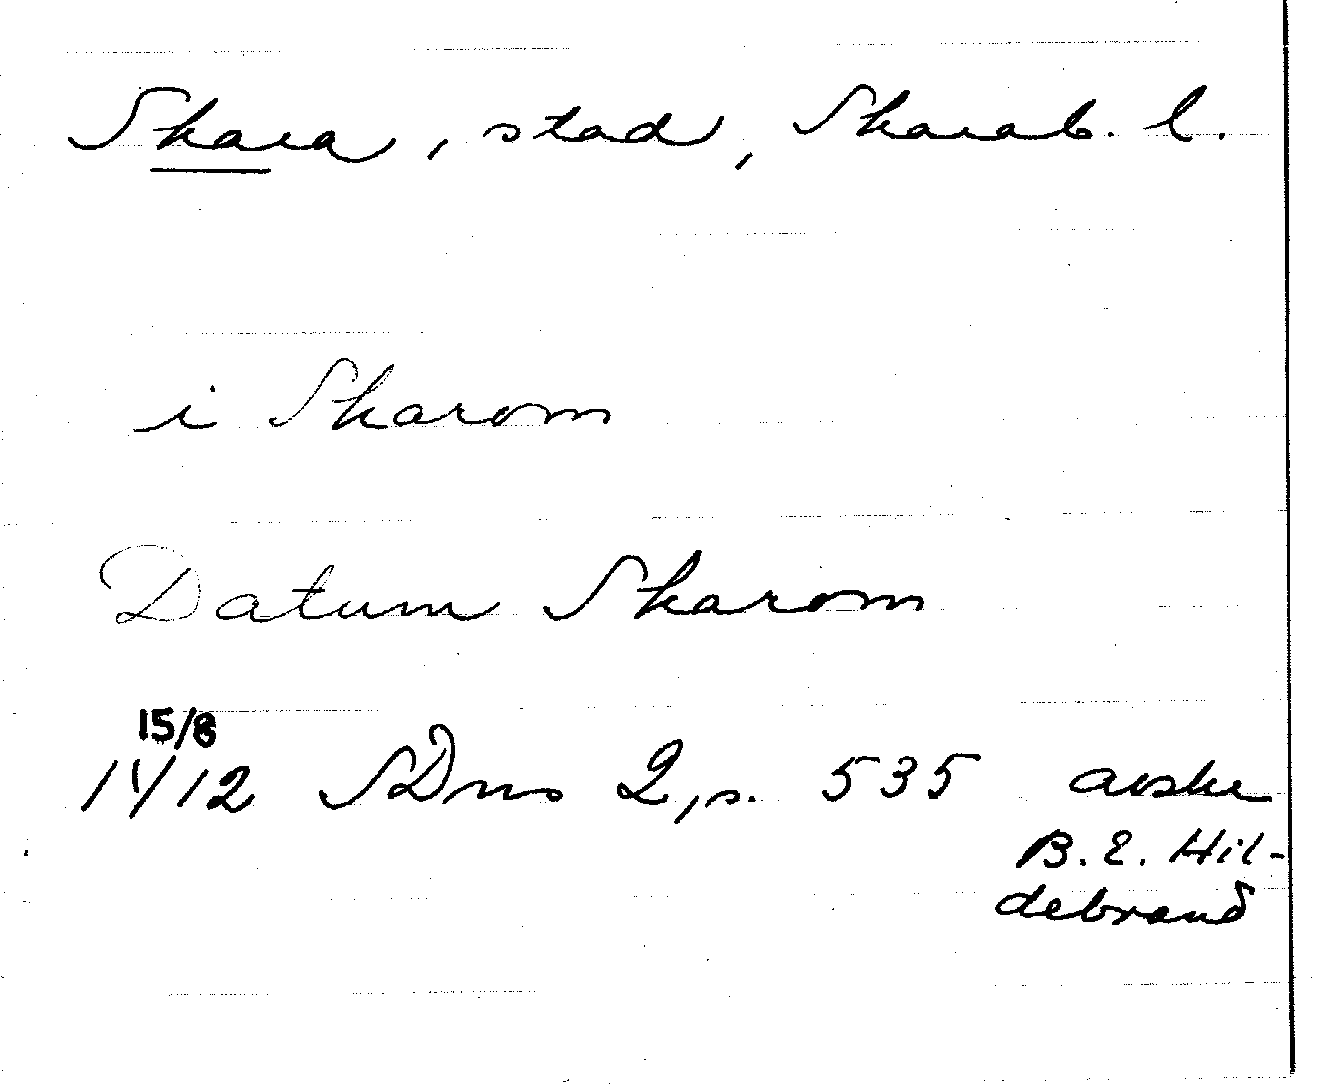 Skara, stad, Skarab. l.
i Skarom
Datum Skarom
15/8
1412 SDns 2, s. 535 avskr
B. E. Hil-
debrand